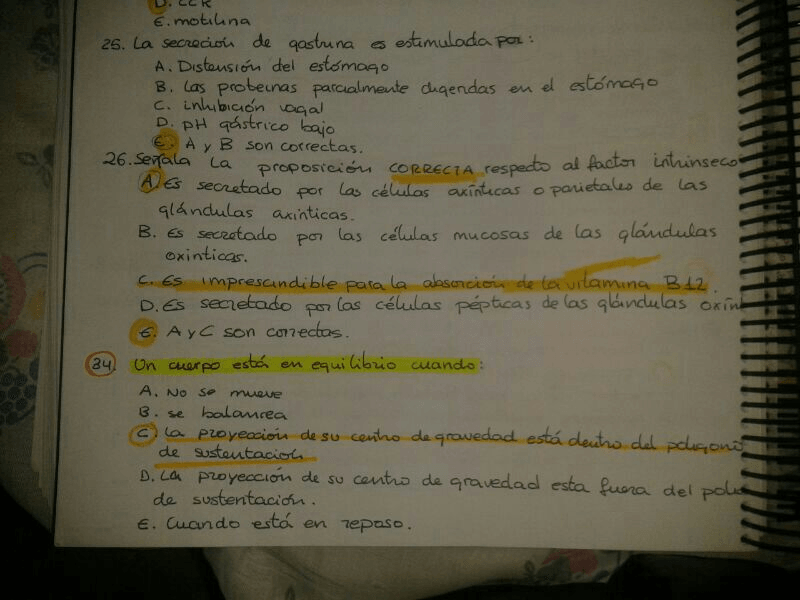 D. CCK
E. motilina
25. La secreción de gastrina es estimulada por:
A. Distensión del estómago
B. Las proteinas parcialmente digeridas en el estómago
C. inhibición vagal
D. pH gástrico bajo
E. A y B son correctas.
26. Señala la proposición CORRECTA respecto al factor intrinseco
A. Es secretado por las células axínticas o parietales de las
glándulas axinticas.
B. Es secretado por las células mucosas de las glándulas
oxinticas.
C. Es imprescindible para la absorción de la vitamina B12.
D. Es secretado por las células pépticas de las glándulas oxín
E. A y C son correctas.
34. Un cuerpo está en equilibrio cuando:
A. No se mueve
B. se balancea
C. La proyección de su centro de gravedad está dentro del poligono
de sustentación
D. La proyección de su centro de gravedad esta fuera del polig
de sustentación.
E. Cuando está en reposo.